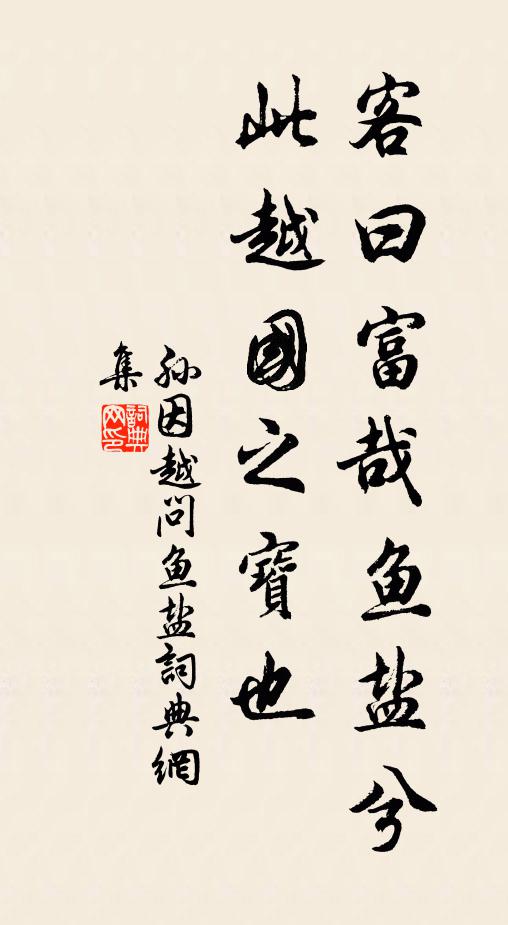 客曰富哉鱼盐兮
此越國之寶也
孙因越问鱼盐詞典網
集
詞典网印